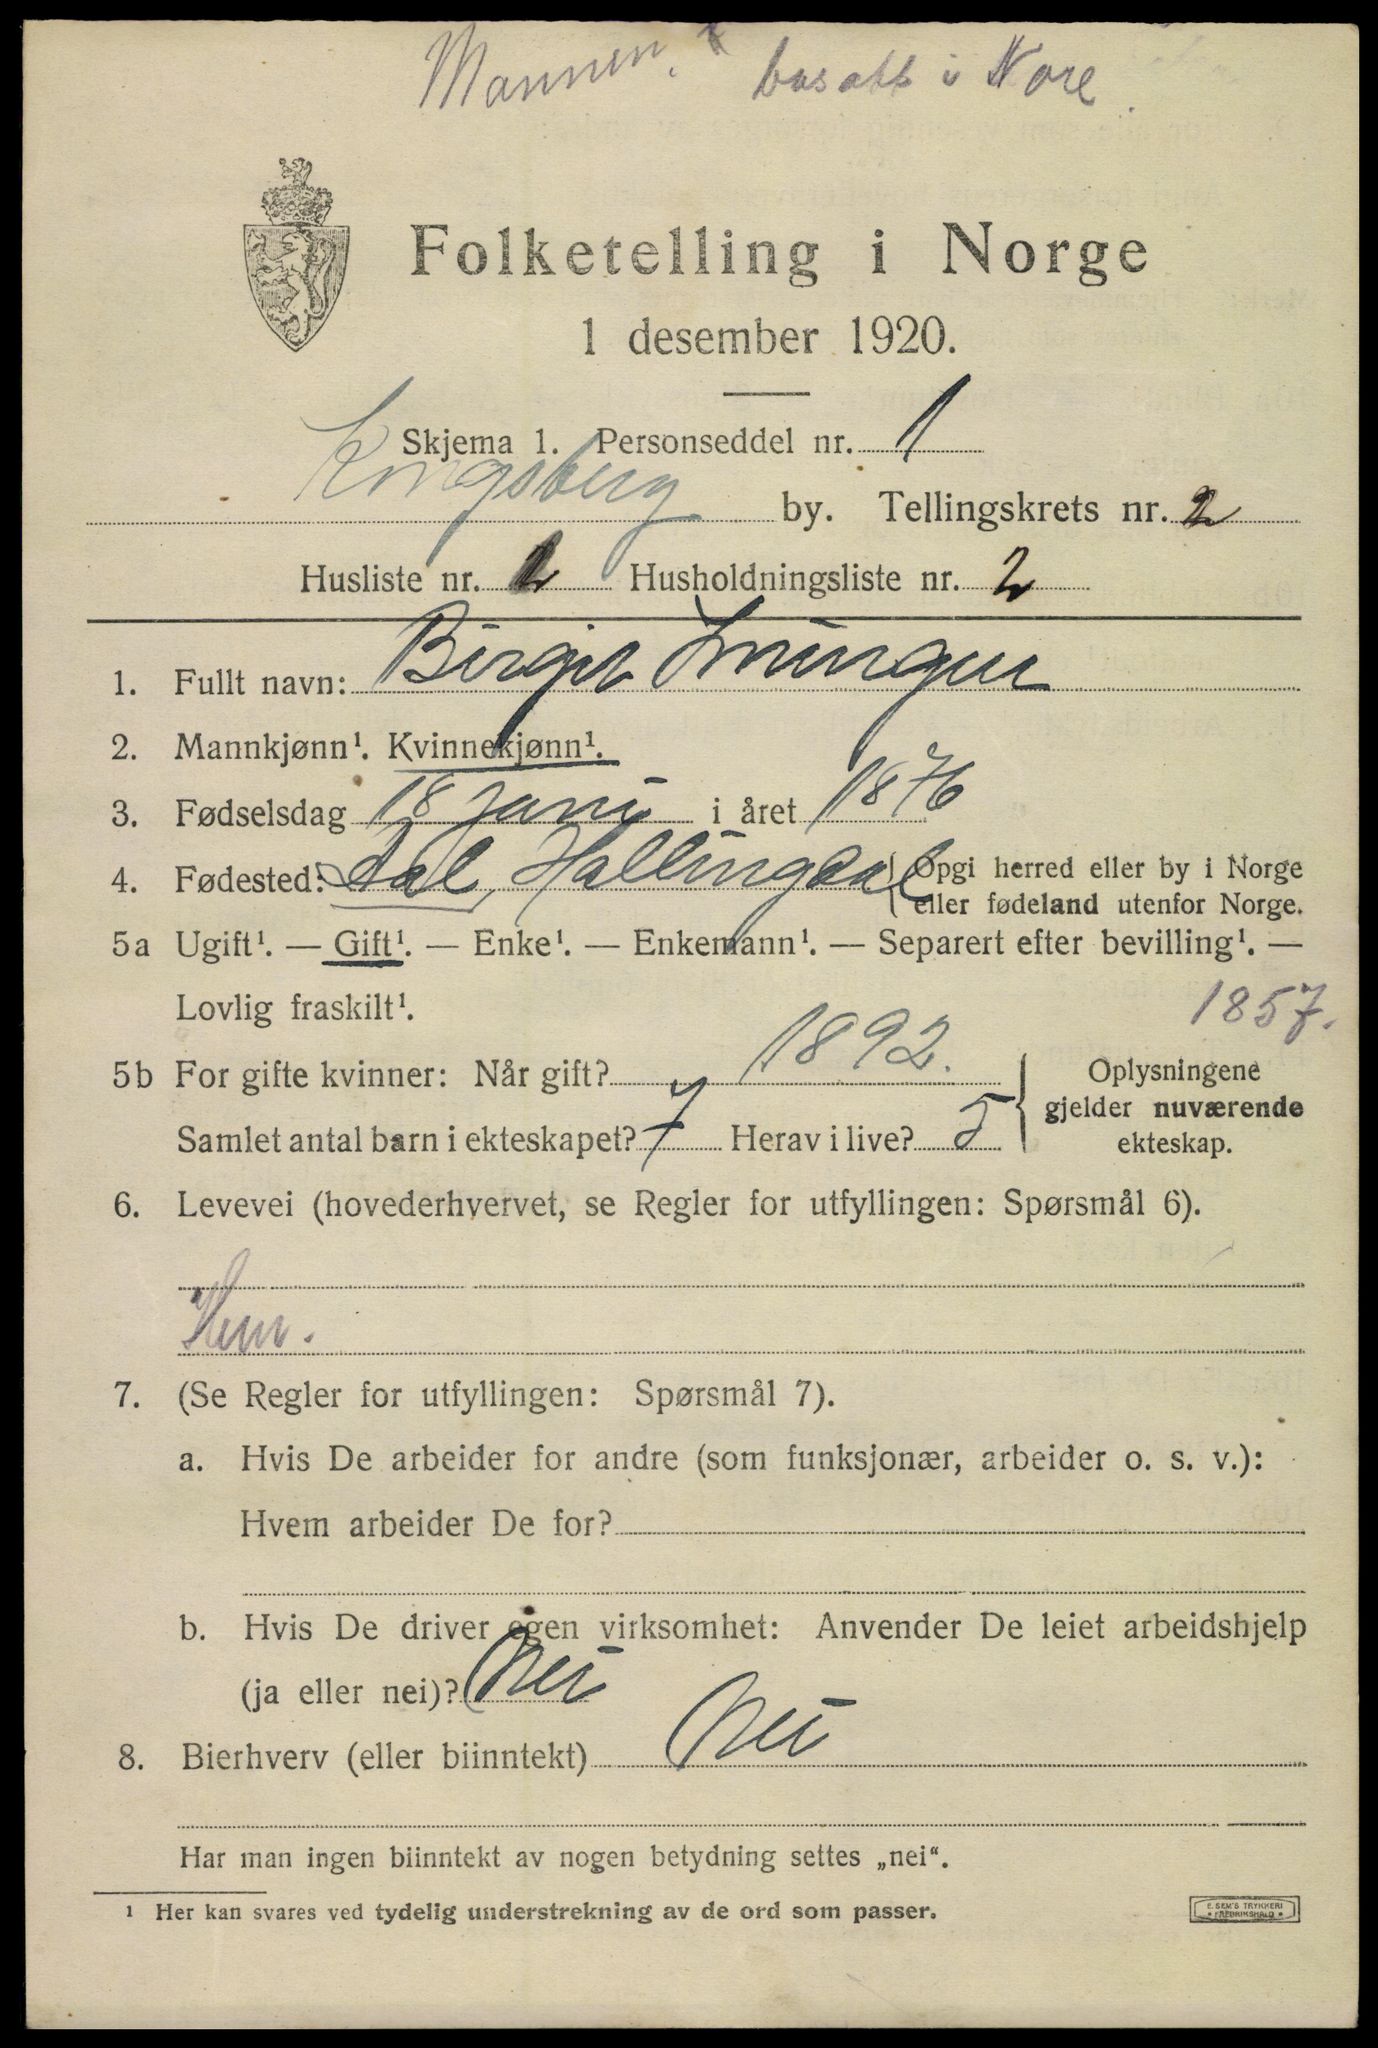 Mannen, bosatt i Nore.
Folketelling i Norge
1 desember 1920.
Skjema 1. Personseddel nr. 1
Kongsberg by. Tellingskrets nr. 2
Husliste nr. 2 Husholdningsliste nr. 2
1. Fullt navn: Birgit
2. Mannkjønn¹. Kvinnekjønn¹.
3. Fødselsdag 18 juni i året 1876
4. Fødested: Aal, Hallingdal { Opgi herred eller by i Norge
eller fødeland utenfor Norge.
5a Ugift¹. — Gift¹. — Enke¹. — Enkemann¹. — Separert efter bevilling¹. —
Lovlig fraskilt¹.
1857.
5b For gifte kvinner: Når gift? 1892.
Samlet antal barn i ekteskapet? 7 Herav i live? 5
} Oplysningene
gjelder nuværende
ekteskap.
6. Levevei (hovederhvervet, se Regler for utfyllingen: Spørsmål 6).
7. (Se Regler for utfyllingen: Spørsmål 7).
a. Hvis De arbeider for andre (som funksjonær, arbeider o. s. v.):
Hvem arbeider De for?
b. Hvis De driver egen virksomhet: Anvender De leiet arbeidshjelp
(ja eller nei)? Nei
8. Bierhverv (eller biinntekt) Nei
Har man ingen biinntekt av nogen betydning settes „nei“.
¹ Her kan svares ved tydelig understrekning av de ord som passer.
E. SEM'S TRYKKERI
* FREDRIKSHALD *